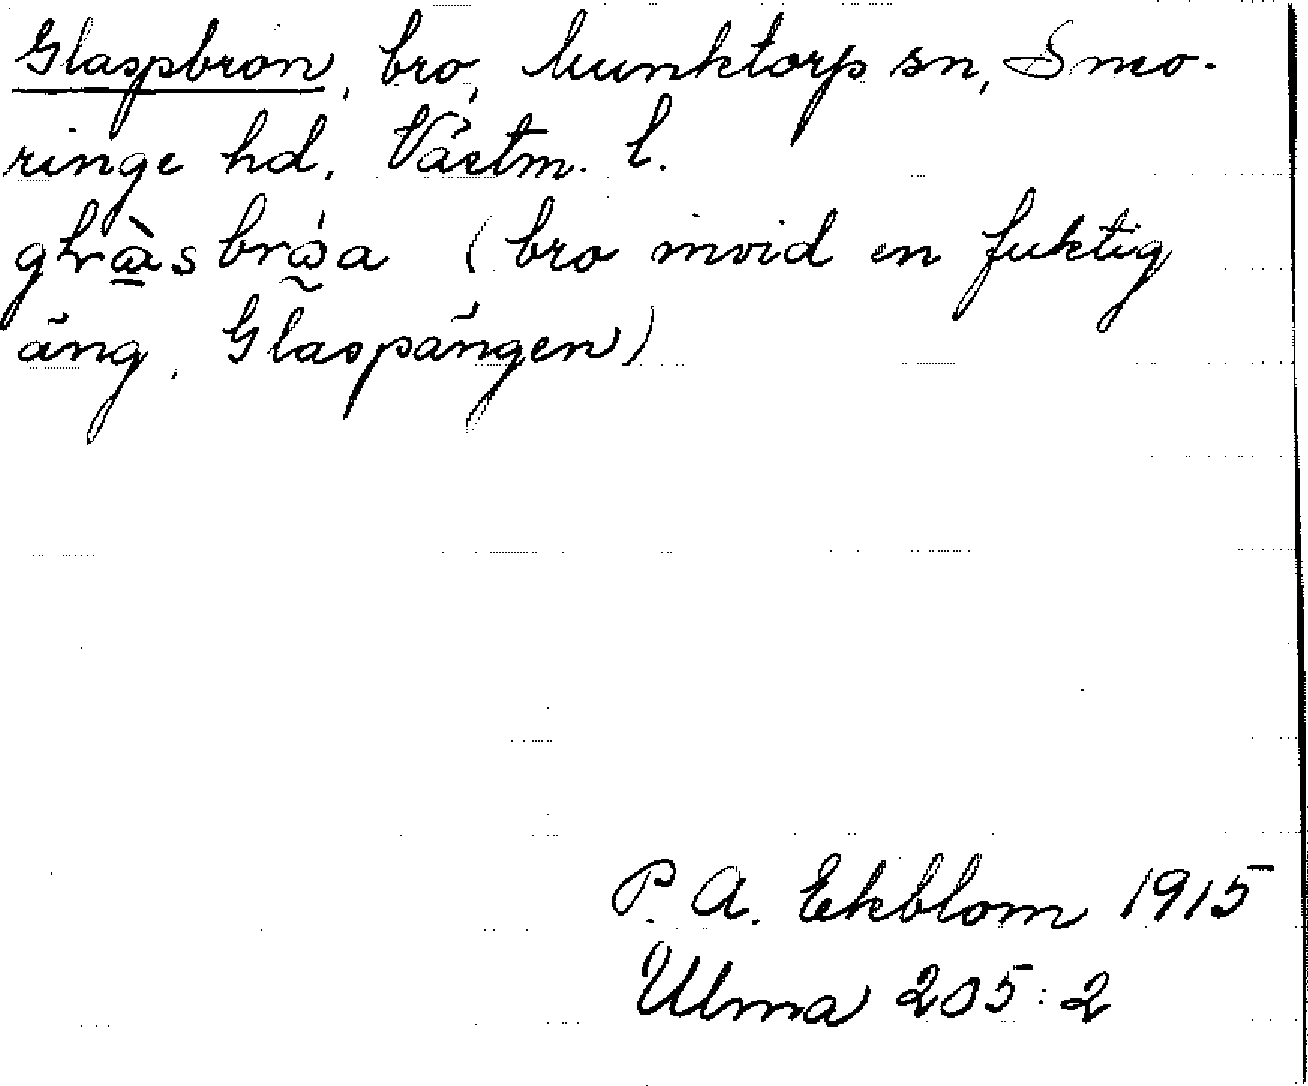 Glaspbron, bro, Munktorp sn, Sno-
ringe hd, Västm. l.
bråa (bro invid en fuktig
äng, Glaspängen)
P. A. Ekblom 1915
Ulma 205:2